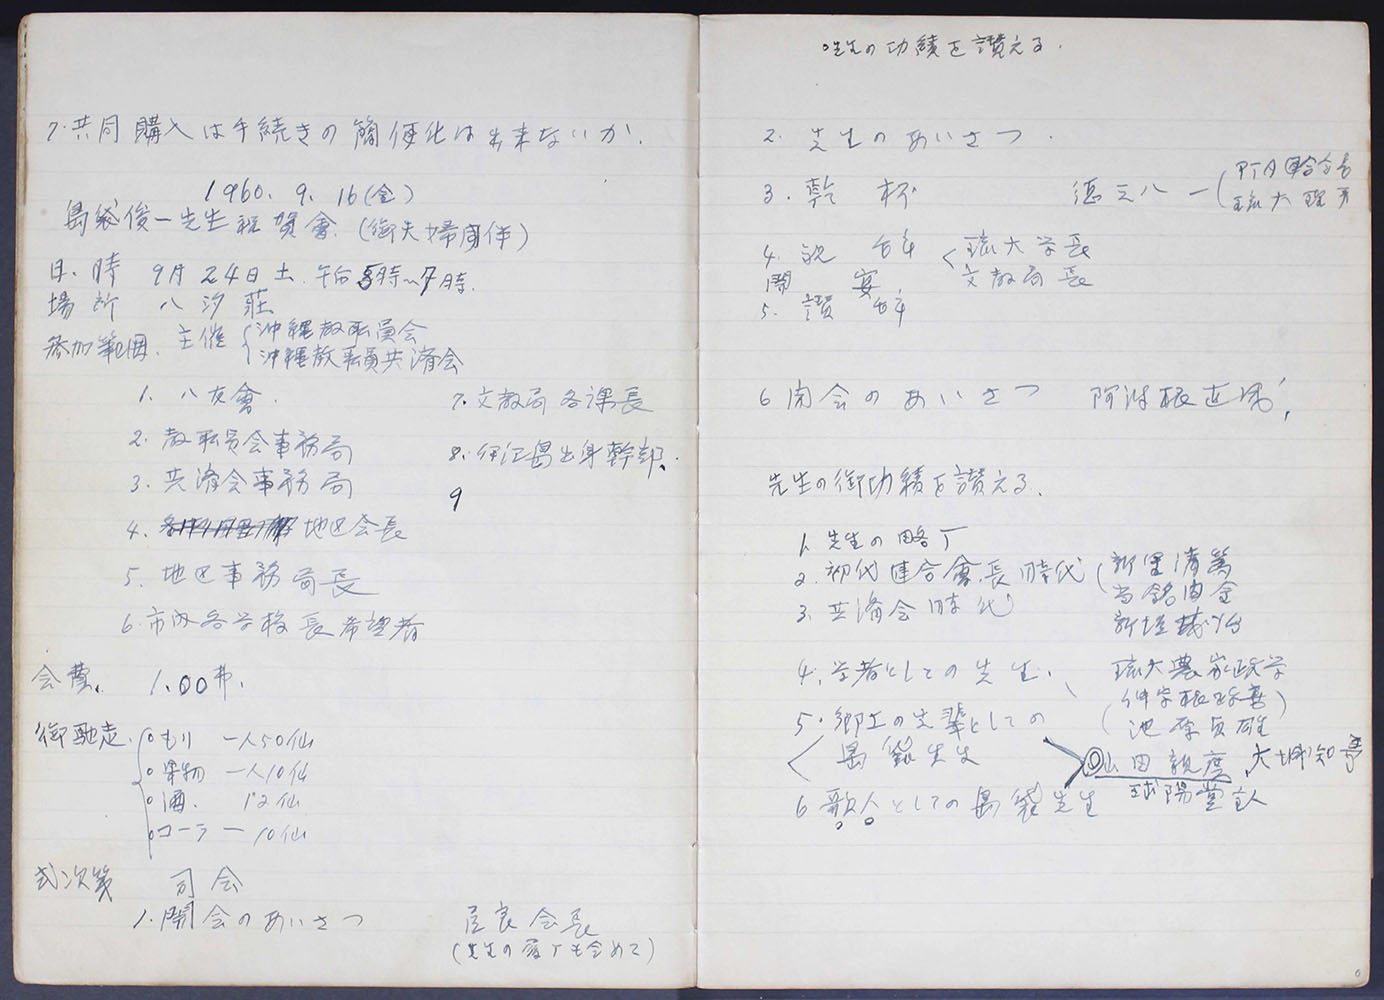 7. 共同購入は手続きの簡便化は出来ないか.
1960. 9. 16(金)
島袋俊一先生祝賀會 (御夫婦同伴)
日. 時 9月24日土. 午后5時〜7時.
場所 八汐荘
参加範囲. 主催 沖縄教職員会
沖縄教職員共済会
1. 八友會.
2. 教職員会事務局
3. 共済会事務局
4. 地区会長
5. 地区事務局長
6. 市内各学校長希望者
7. 文教局各課長
8. 伊江島出身幹部.
9
会費. 1.00弗.
御馳走. o もり 一人50仙
o 果物 一人10仙
o 酒. 12仙
o コーラ ー 10仙
式次第 司会
1. 開会のあいさつ 屋良会長
(先生の を含めて)
先生の功績を讃える.
2. 先生のあいさつ.
3. 乾杯 徳元八一 (PTA連合会長
琉大理事
4. 祝辞 < 琉大学長
文教局長
開宴
5. 讃辞
6 閉会のあいさつ 阿波根
先生の御功績を讃える.
1. 先生の略
2. 初代連合會長時代 (新里清篤
当銘由金
新垣茂治
3. 共済会時代
4. 学者としての先生. 琉大農家政学
(仲宗根政善)
池原貞雄
5. 郷土の先輩としての
島袋先生 ◎山田親度、大城知善
6 歌人としての島袋先生 球陽堂主人